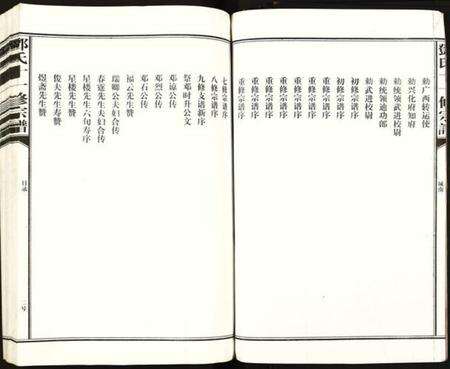 敕广西转运使
敕兴化府知府
敕统领武进校尉
敕统领迪功郎
敕武进校尉
初修宗谱序
初修宗谱序
重修宗谱序
重修宗谱序
重修宗谱序
重修宗谱序
重修宗谱序
重修宗谱序
七修宗谱序
八修宗谱序
九修支谱新序
祭邓时升公文
邓谅公传
邓烈公传
邓石公传
福云先生赞
瑞卿公夫妇合传
春霆先生夫妇合传
星楼先生六旬寿序
星楼先生赞
俊夫先生寿赞
煜斋先生赞
邓氏十一修宗谱
目录